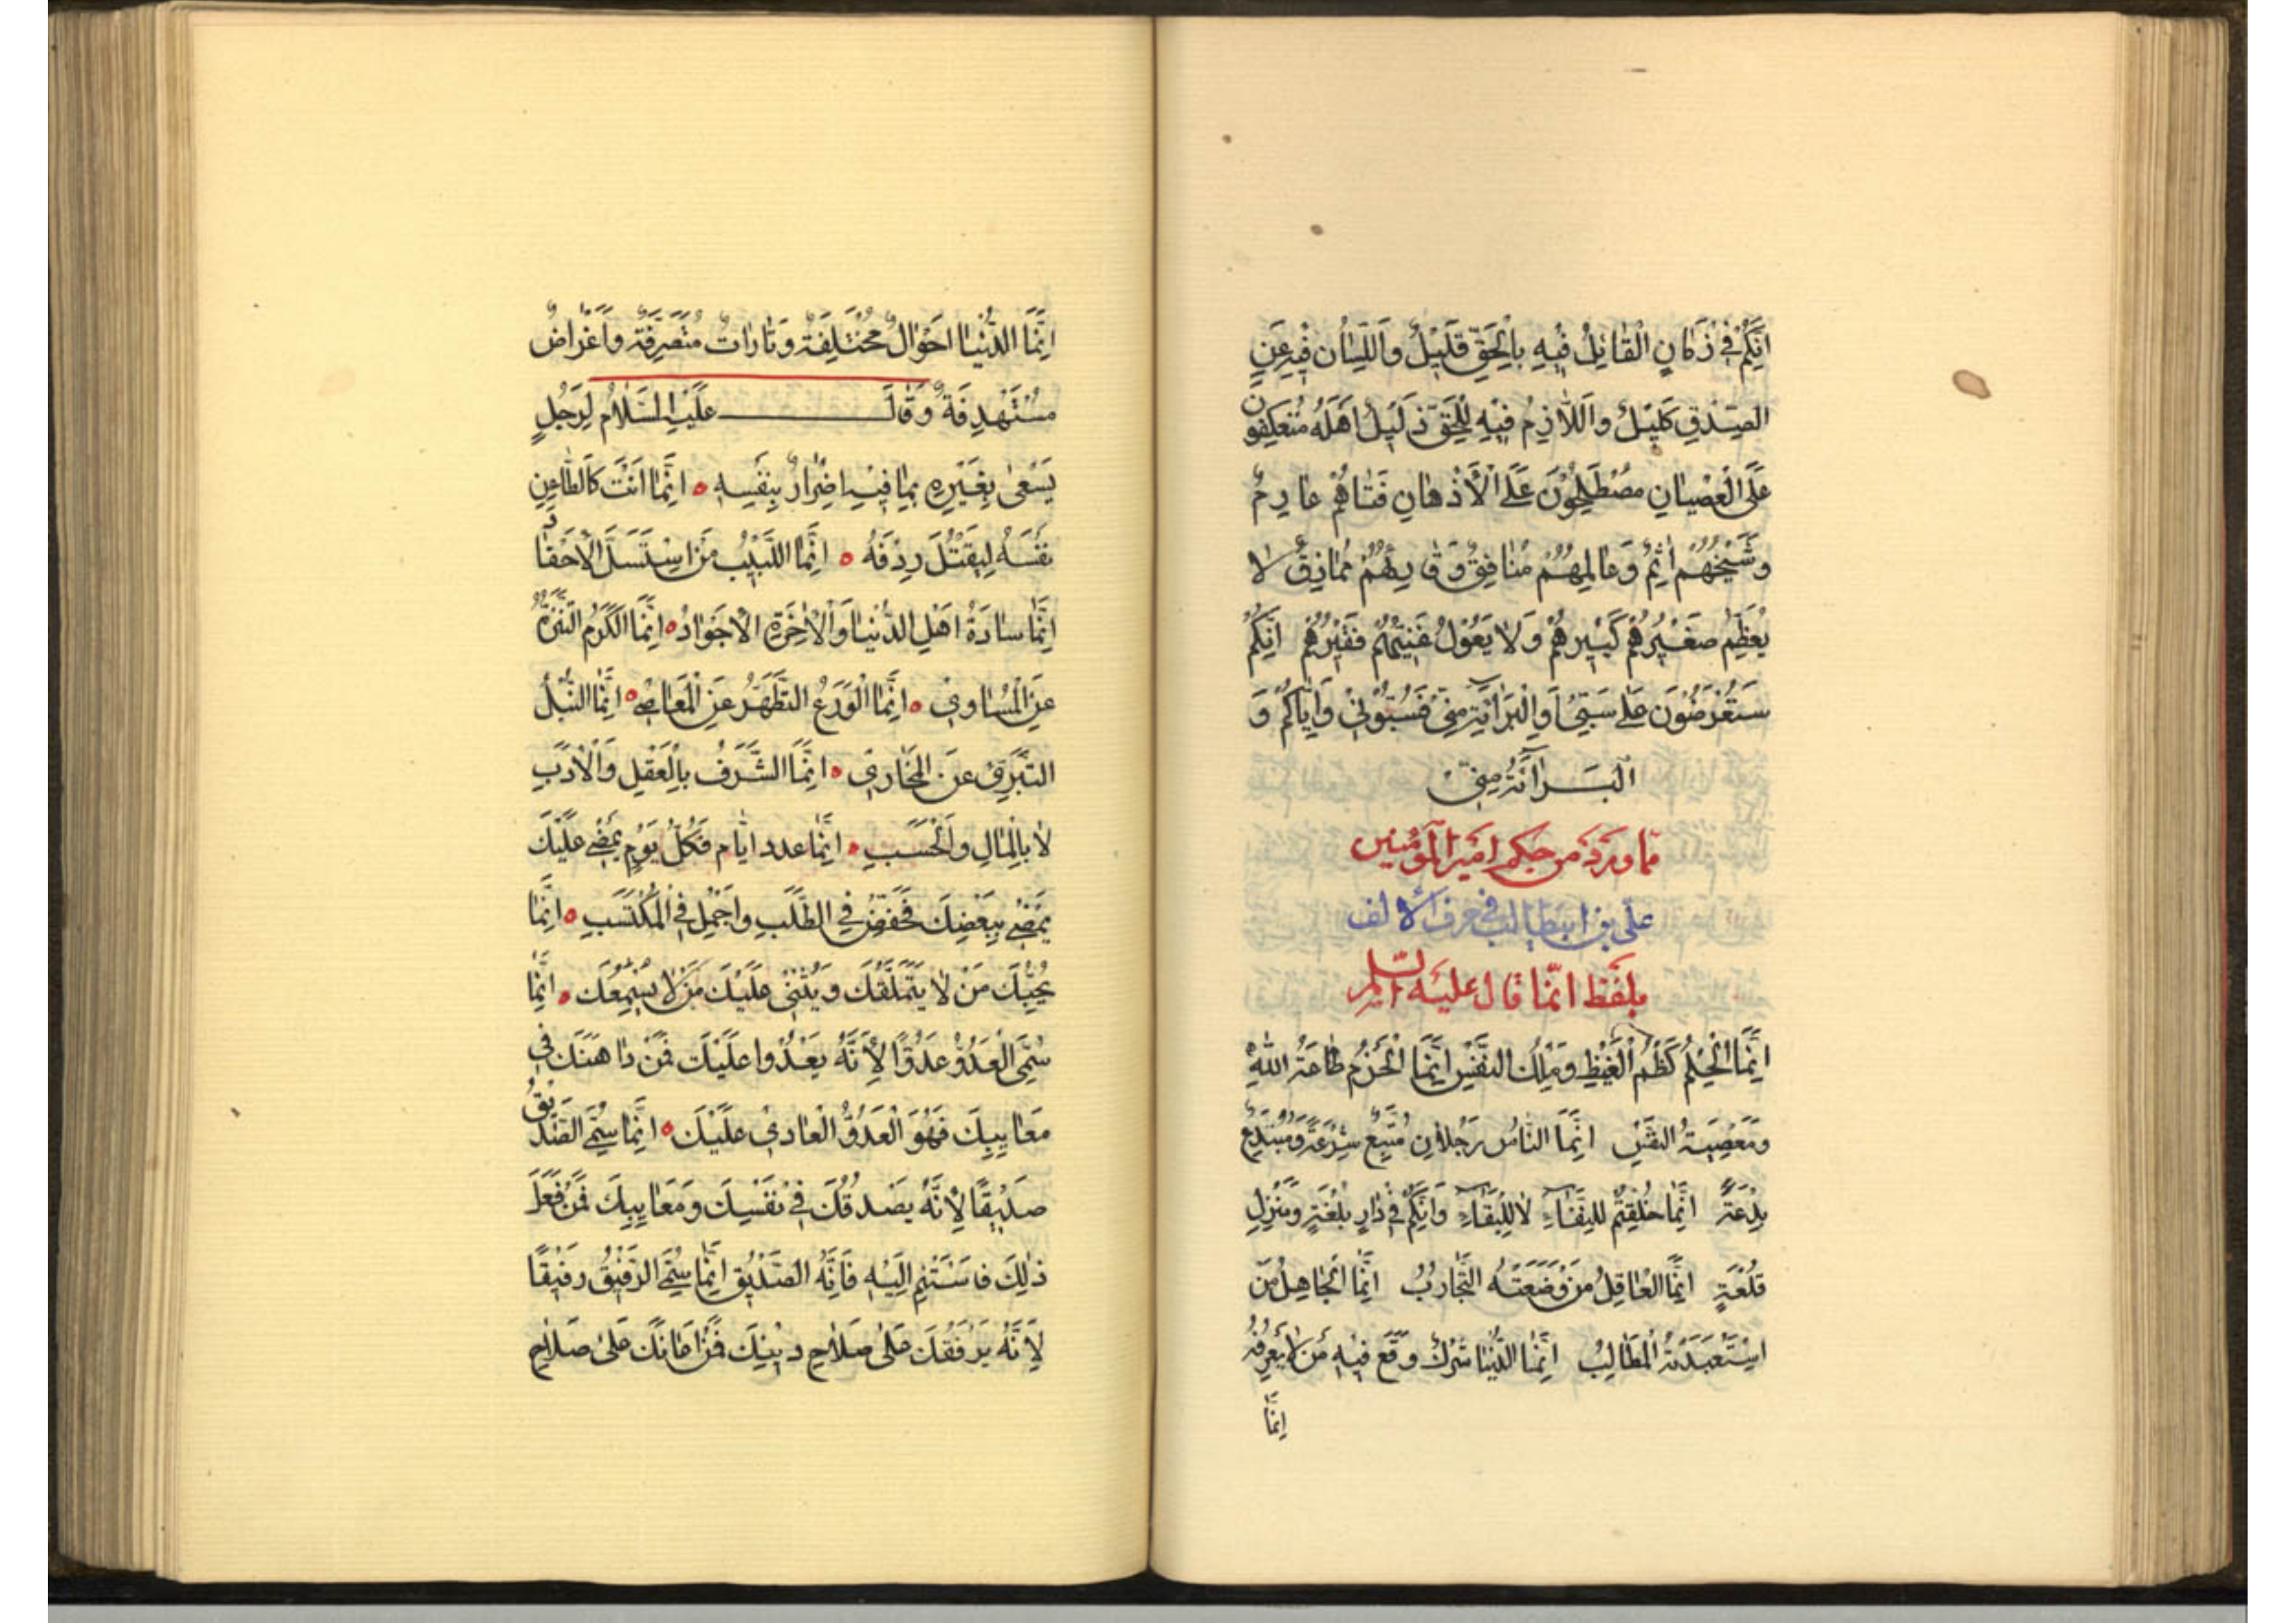 اِنَّكُمْ فِي زَمَانٍ الْقَائِلُ فِيهِ بِالْحَقِّ قَلِيلٌ وَاللِّسَانُ فِيهِ عَنِ
الصِّدْقِ كَلِيلٌ وَاللَّازِمُ فِيهِ لِلْحَقِّ ذَلِيلٌ اَهْلُهُ مُنْعَكِفُونَ
عَلَى الْعِصْيَانِ مُصْطَلِحُونَ عَلَى الْأَذْهَانِ فَتَاهُمْ عَارِمٌ
وَشَيْخُهُمْ اٰثِمٌ وَعَالِمُهُمْ مُنَافِقٌ وَقَارِيهُمْ مُمَاذِقٌ لَا
يُعَظِّمُ صَغِيْرُهُمْ كَبِيْرَهُمْ وَلَا يَعُوْلُ غَنِيُّهُمْ فَقِيْرَهُمْ اِنَّكُمْ
سَتُعْرَضُوْنَ عَلَى سَبِّي وَالْبَرَائَةِ مِنِّي فَسُبُّوْنِيْ وَاِيَّاكُمْ وَ
الْبَرَائَةَ مِنِّي
مما ورد من حكم امير المؤمنين
على بن ابيطالب في حرف الالف
بلفظ انّما قال عليه السلم
اِنَّمَا الْحِلْمُ كَظْمُ الْغَيْظِ وَمِلْكُ النَّفْسِ اِنَّمَا الْحَزْمُ طَاعَةُ اللهِ
وَمَعْصِيَةُ النَّفْسِ اِنَّمَا النَّاسُ رَجُلَانِ مُتَّبِعٌ شِرْعَةً وَمُبْتَدِعٌ
بِدْعَةً اِنَّمَا خُلِقْتُمْ لِلْفَنَاءِ لَا لِلْبَقَاءِ وَاِنَّكُمْ فِي دَارِ بُلْغَةٍ وَمَنْزِلِ
قُلْعَةٍ اِنَّمَا الْعَاقِلُ مَنْ وَعَظَتْهُ التَّجَارِبُ اِنَّمَا الْجَاهِلُ مَنِ
اسْتَعْبَدَتْهُ الْمَطَالِبُ اِنَّمَا الدُّنْيَا شَرَكٌ وَقَعَ فِيهِ مَنْ لَا يَعْرِفُهُ
اِنَّمَا
اِنَّمَا الدُّنْيَا اَحْوَالٌ مُخْتَلِفَةٌ وَتَارَاتٌ مُتَصَرِّفَةٌ وَاَغْرَاضٌ
مُسْتَهْدِفَةٌ وَقَالَ عَلَيْهِ السَّلَامُ لِرَجُلٍ
يَسْعَى بِغَيْرِهِ بِمَا فِيهِ اِضْرَارٌ بِنَفْسِهِ ه اِنَّمَا اَنْتَ كَالطَّاعِنِ
نَفْسَهُ لِيَقْتُلَ رِدْفَهُ ه اِنَّمَا اللَّبِيْبُ مَنِ اسْتَسَلَّ الْاَحْقَادَ
اِنَّمَا سَادَةُ اَهْلِ الدُّنْيَا وَالْاٰخِرَةِ الْاَجْوَادُ ه اِنَّمَا الْكَرَمُ التَّنَزُّهُ
عَنِ الْمَسَاوِيْ ه اِنَّمَا الْوَرَعُ التَّطَهُّرُ عَنِ الْمَعَاصِي ه اِنَّمَا النُّبْلُ
التَّبَرِّيْ عَنِ الْمَخَازِيْ ه اِنَّمَا الشَّرَفُ بِالْعَقْلِ وَالْاَدَبِ
لَا بِالْمَالِ وَالْحَسَبِ ه اِنَّمَا عدد ايَّام فَكُلُّ يَوْمٍ يَمْضِي عَلَيْكَ
يَمْضِي بِبَعْضِكَ فَخَفِّضْ فِي الطَّلَبِ وَاَجْمِلْ فِي الْمُكْتَسَبِ ه اِنَّمَا
يُحِبُّكَ مَنْ لَا يَتَمَلَّقُكَ وَيُثْنِيْ عَلَيْكَ مَنْ لَا يُسْمِعُكَ ه اِنَّمَا
سُمِّيَ الْعَدُوُّ عَدُوًّا لِاَنَّهُ يَعْدُوْا عَلَيْكَ فَمَنْ دَاهَنَكَ فِي
مَعَايِبِكَ فَهُوَ الْعَدُوُّ الْعَادِيْ عَلَيْكَ ه اِنَّمَا سُمِّيَ الصَّدِيْقُ
صَدِيْقًا لِاَنَّهُ يَصْدُقُكَ فِيْ نَفْسِكَ وَمَعَايِبِكَ فَمَنْ فَعَلَ
ذٰلِكَ فَاسْتَنِمْ اِلَيْهِ فَاِنَّهُ الصَّدِيْقُ اِنَّمَا سُمِّيَ الرَّفِيْقُ رَفِيْقًا
لِاَنَّهُ يَرْفَقُكَ عَلَى صَلَاحِ دِيْنِكَ فَمَنْ اَعَانَكَ عَلَى صَلَاحِ